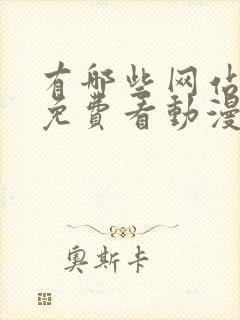 有哪些网站
免費看動漫
奧斯卡